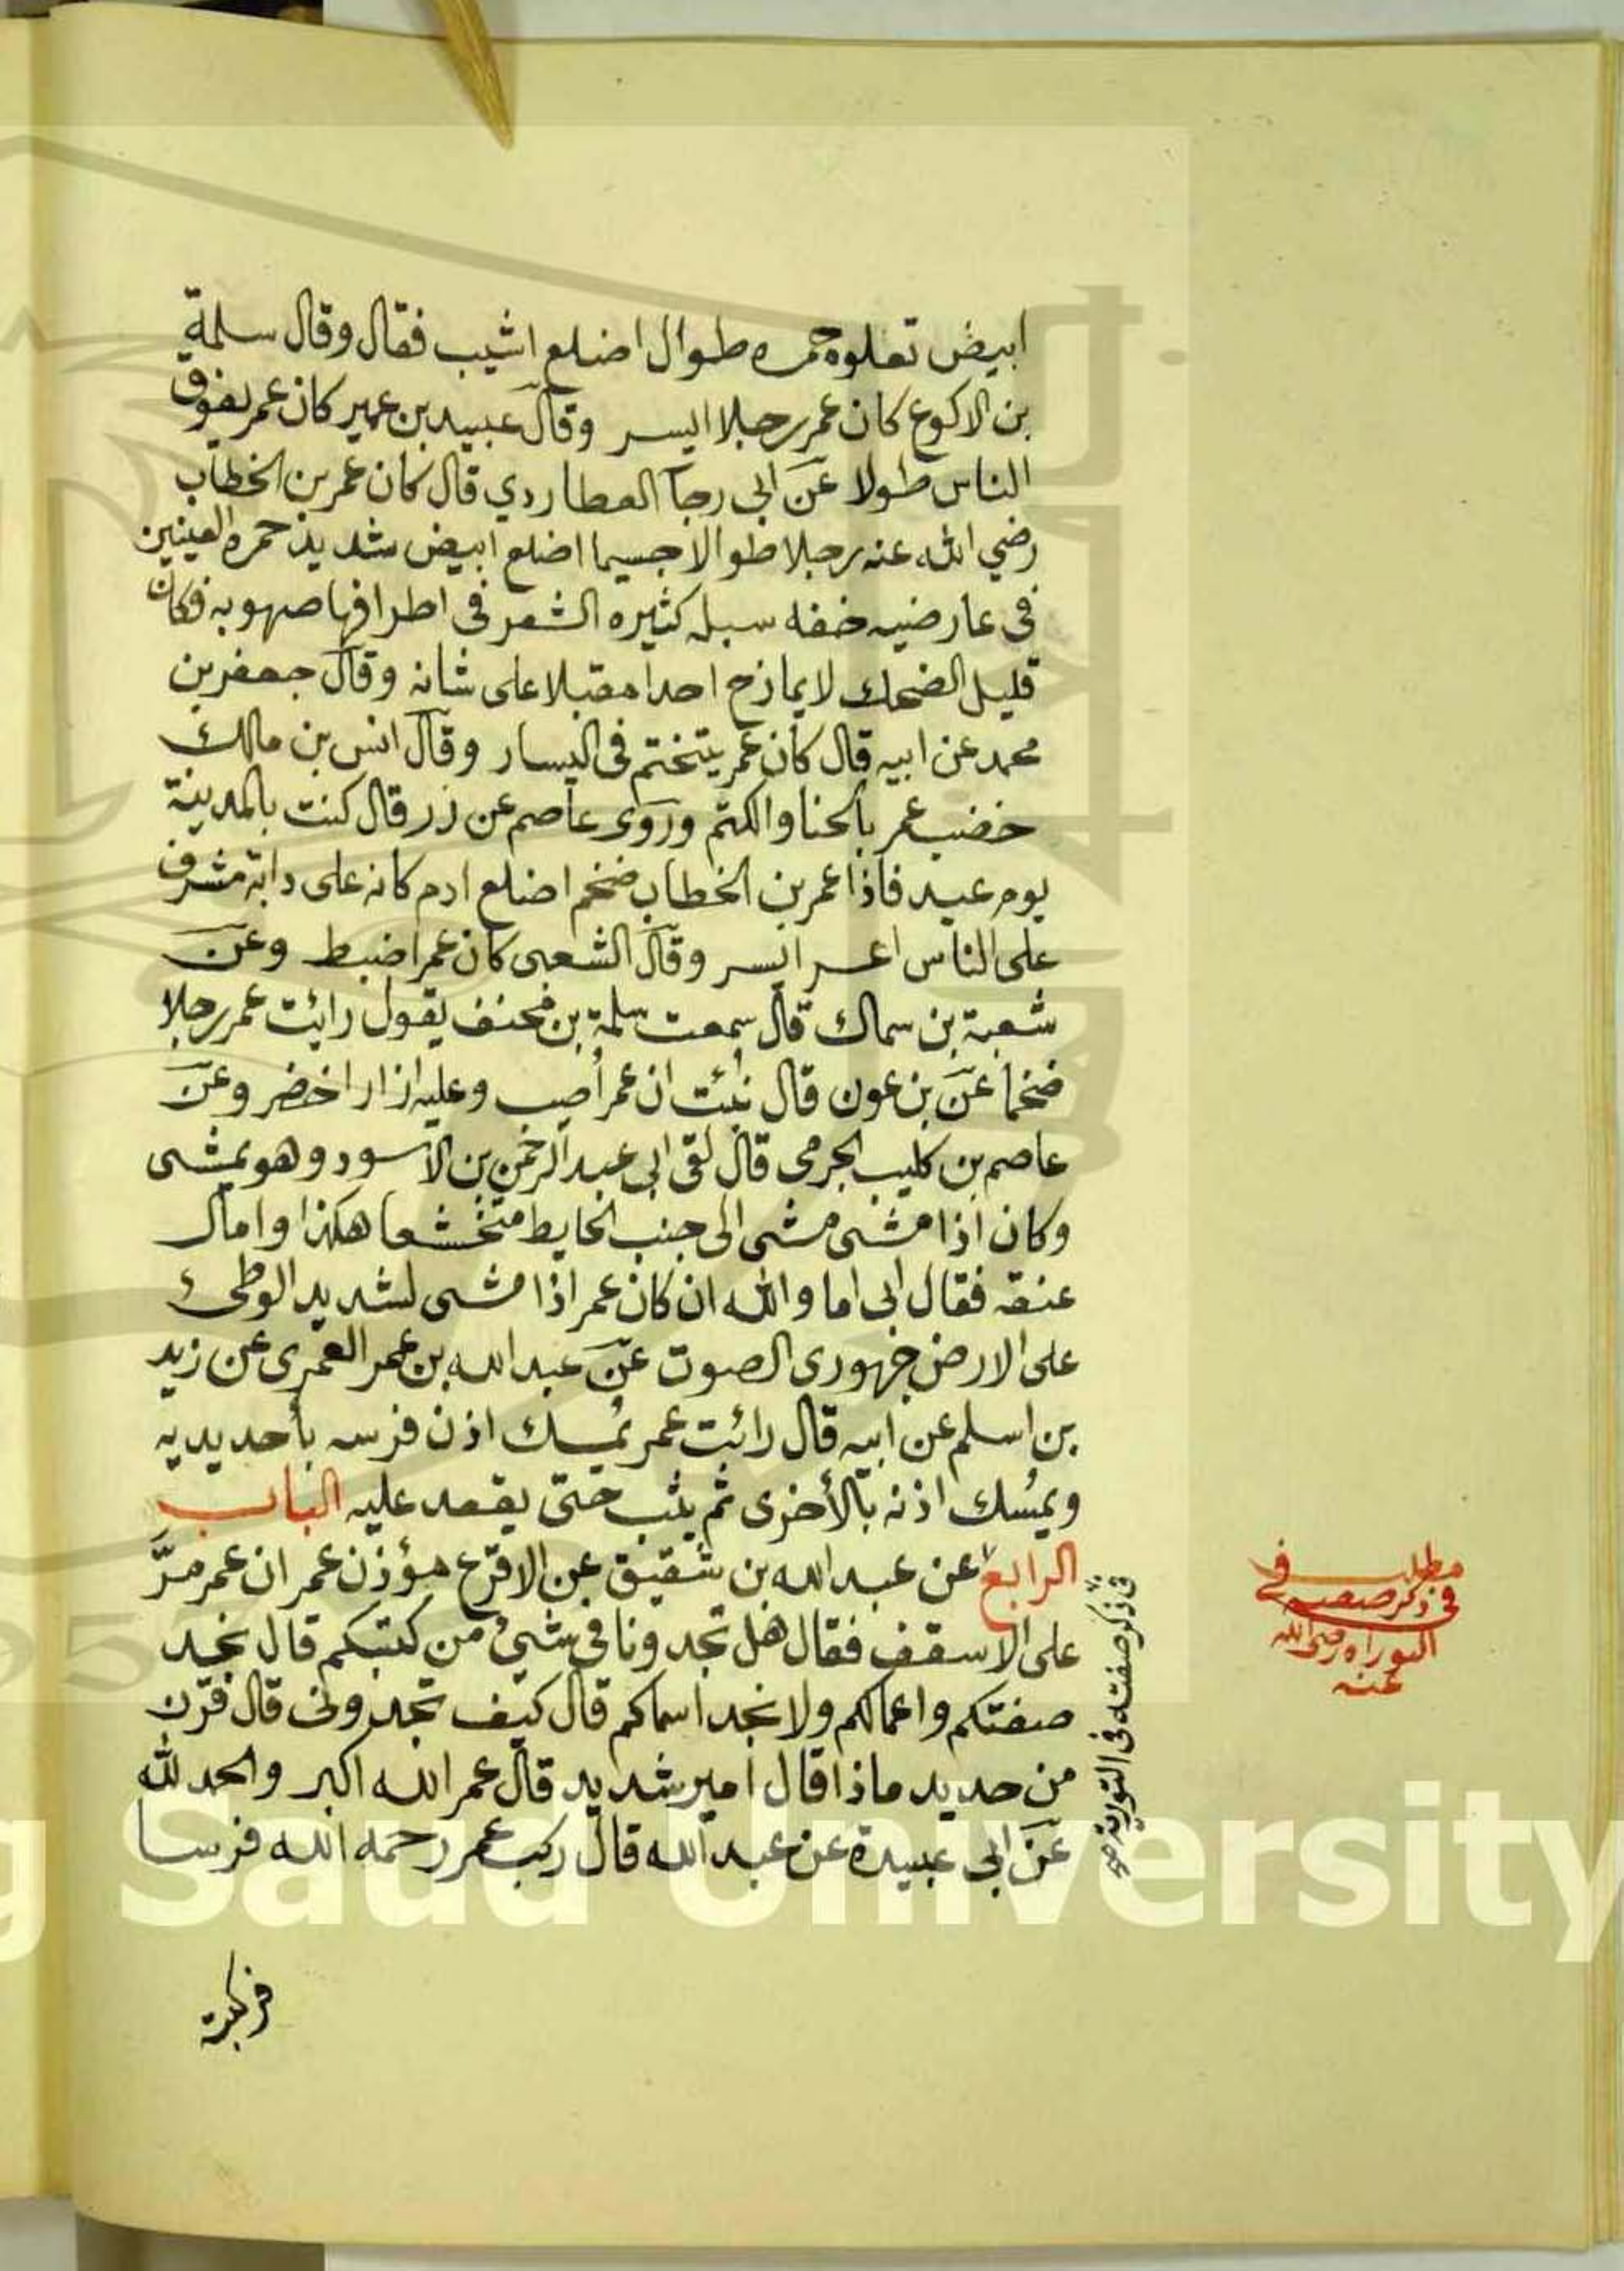 ابيض تعلوه حمره طوال اضلع اشيب فقال وقال سلمة
بن الاكوع كان عمر رجلا ايسر وقال عبيد بن عمير كان عمر يفوق
الناس طولا عن ابى رجآ العطاردي قال كان عمر بن الخطاب
رضي الله عنه رجلا طوالا جسيما اضلع ابيض شديد حمره العينين
فى عارضيه خفه سبله كثيره الشعر فى اطرافها صهوبه وكان
قليل الضحك لا يمازح احدا مقبلا على شانه وقال جعفر بن
محمد عن ابيه قال كان عمر يتختم فى اليسار وقال انس بن مالك
خضب عمر بالحنا والكتم وروى عاصم عن زر قال كنت بالمدينة
يوم عيد فاذا عمر بن الخطاب ضخم اضلع ادم كانه على دابة مشرف
على الناس اعسر ايسر وقال الشعبى كان عمر اضبط وعن
شعبة بن سماك قال سمعت سلمة بن مخنف يقول رائت عمر رجلا
ضخما عن بن عون قال نبئت ان عمر أصيب وعليه ازار اخضر وعن
عاصم بن كليب الجرمى قال لقى ابى عبد الرحمن بن الاسود وهو يمشى
وكان اذا مشى مشى الى جنب الحايط متخشعا هكذا وامال
عنقه فقال ابى اما والله ان كان عمر اذا مشى لشديد الوطئ
على الارض جهورى الصوت عن عبد الله بن عمر العمرى عن زيد
بن اسلم عن ابيه قال رائت عمر يمسك اذن فرسه بأحد يديه
ويمسك اذنه بالأخرى ثم يثب حتى يقعد عليه الباب
الرابع عن عبد الله بن شقيق عن الاقرع مؤذن عمر ان عمر مرّ
على الاسقف فقال هل تجدونا فى شئ من كتبكم قال نجد
صفتكم واعمالكم ولا نجد اسماكم قال كيف تجدونى قال قرن
من حديد ماذا قال امير شديد قال عمر الله اكبر والحمد لله
عن ابى عبيدة عن عبد الله قال ركب عمر رحمه الله فرسا
فركبته
فى ذكر صفته فى التورية
مطلب
فى ذكر صفته فى
التوراه رضى الله
عنه
King Saud University